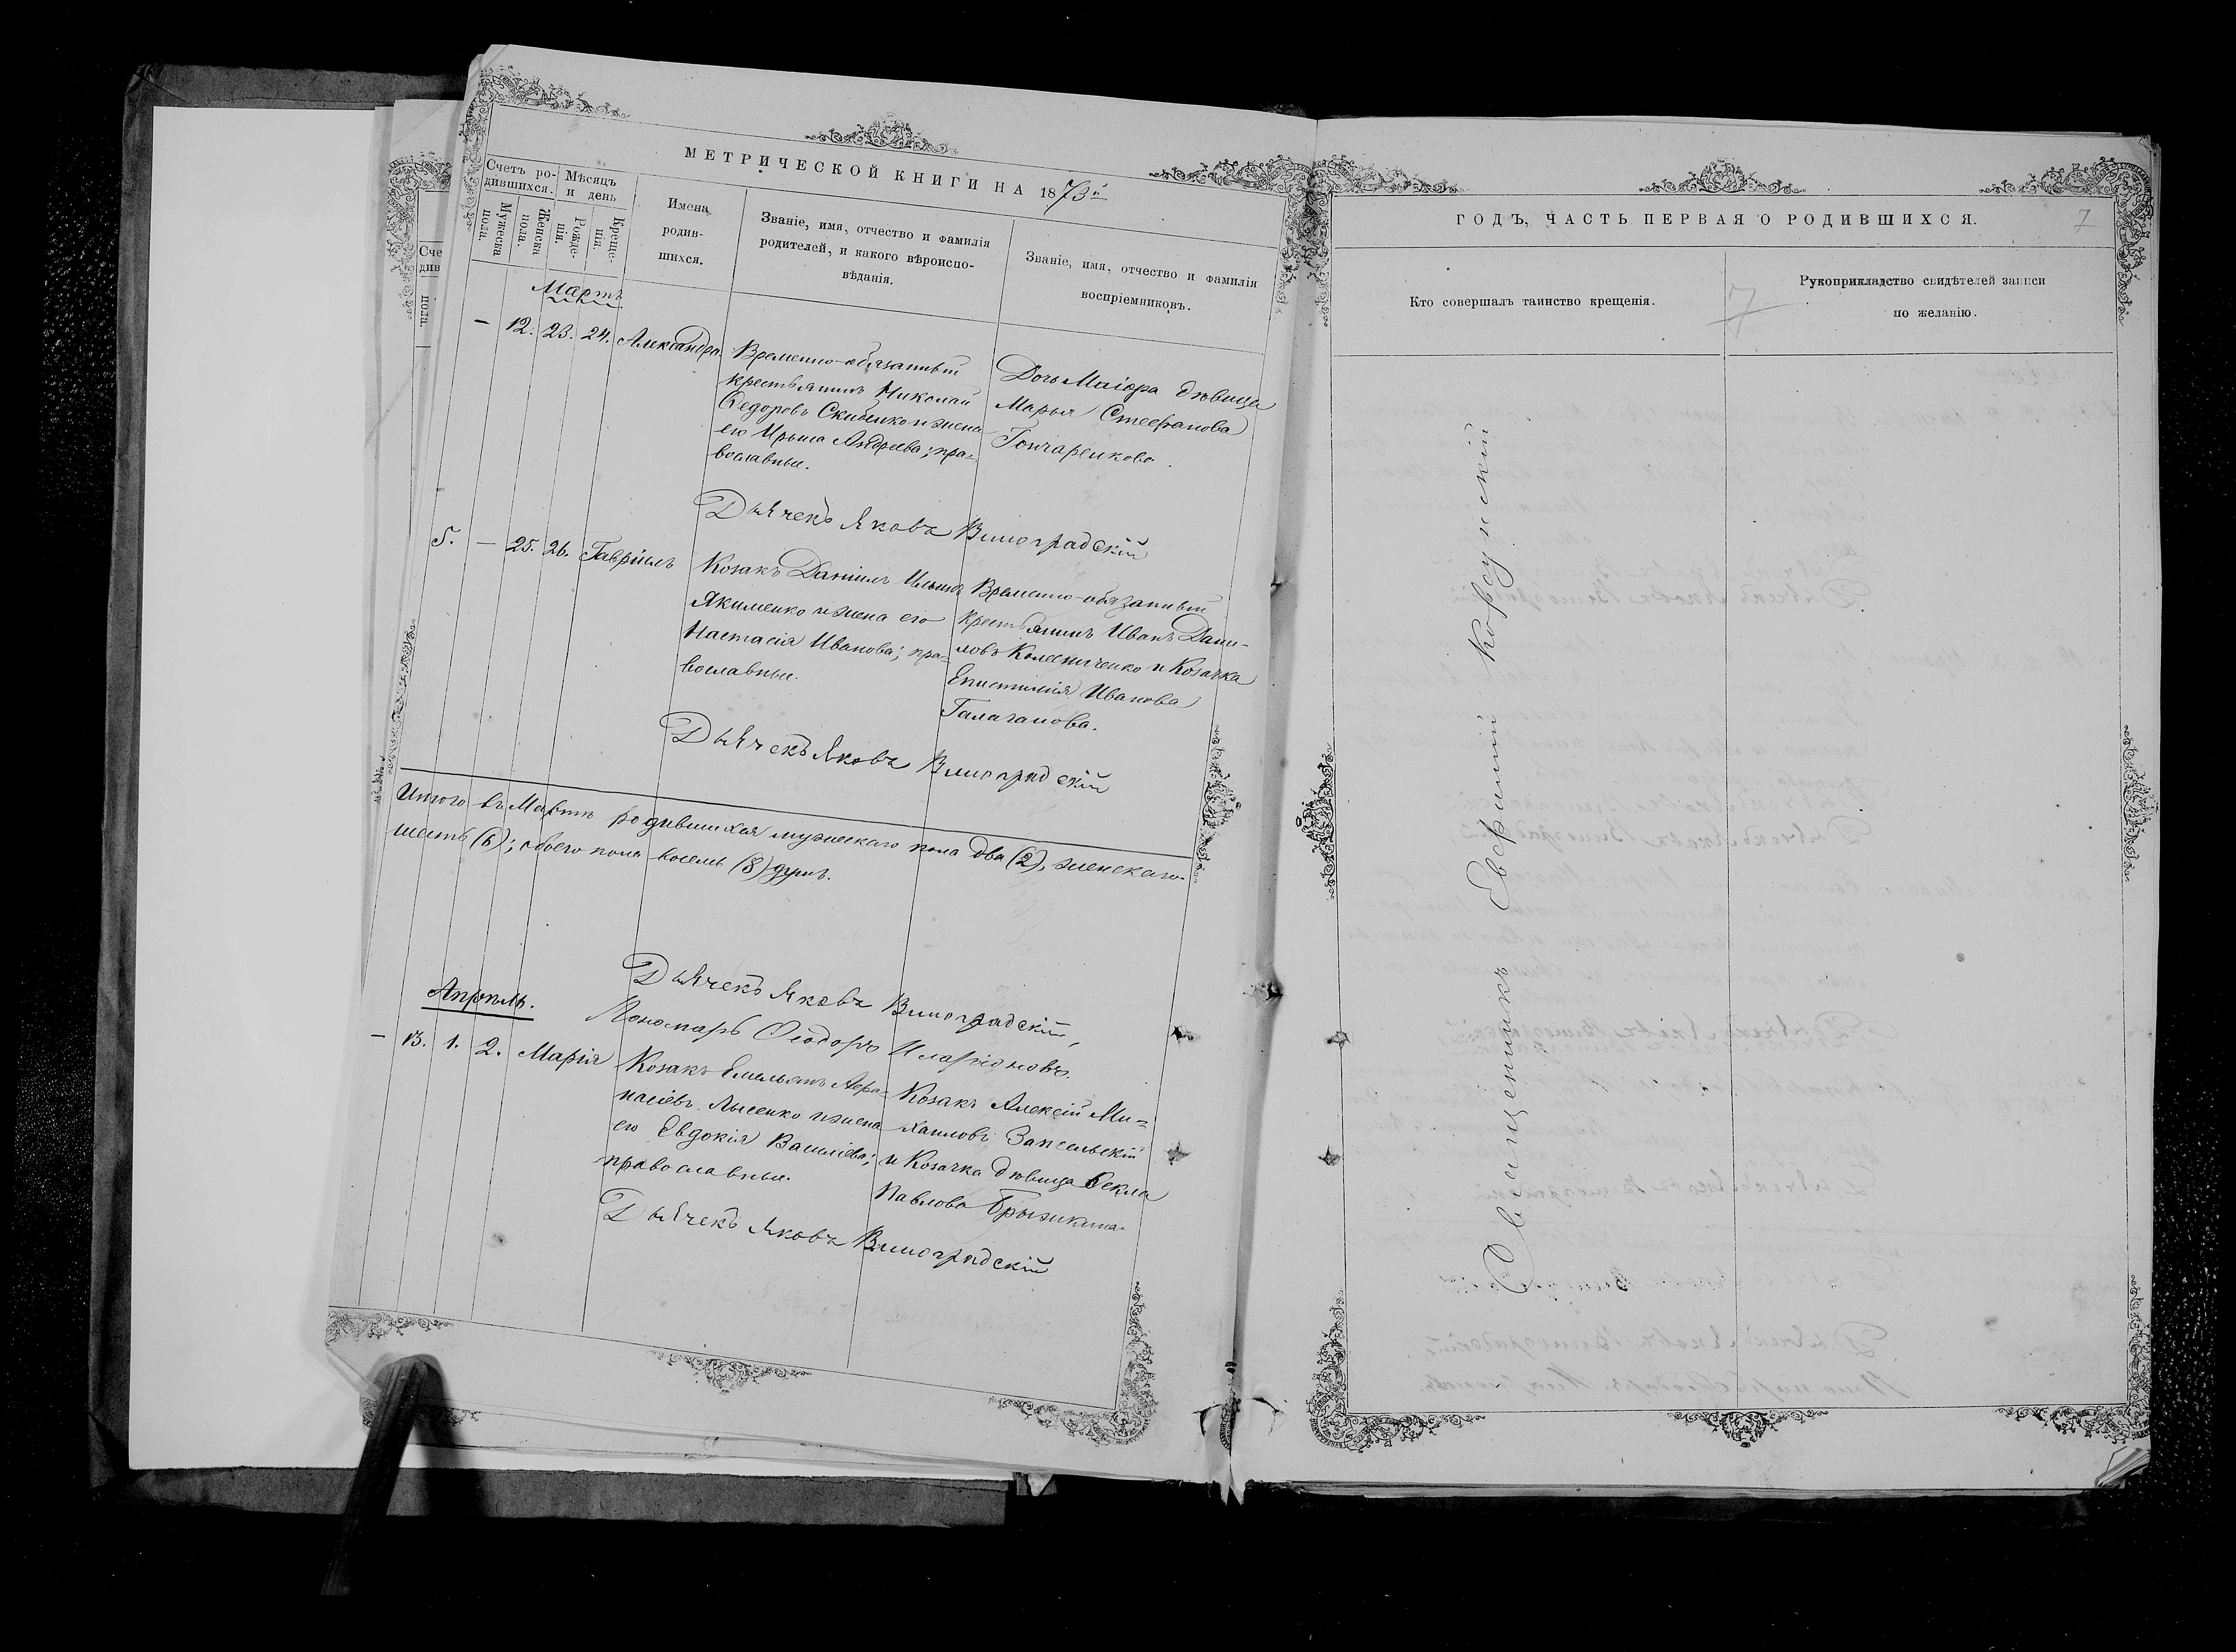 МЕТРИЧЕСКОЙ КНИГИ НА 1873й
Счетъ ро-
дившихся.
Мѣсяцъ
и день
Мужеска
пола.
Женска
пола.
Рожде-
нія.
Креще-
нія.
Имена
родив-
шихся.
Званіе, имя, отчество и фамилія
родителей, и какого вѣроиспо-
вѣданія.
Званіе, имя, отчество и фамилія
воспріемниковъ.
Мартъ
— 12. 23. 24. Александра.
Временно-обязанный
крестьянинъ Николай
Федоровъ и жена
его Андреева; пра-
вославные.
Дочь Маіора дѣвица
Марья Стефанова
Гончаренкова.
Дьячекъ Яковъ Виноградскій
5. — 25. 26. Гавріилъ
Козакъ Даніилъ Ильинъ
Якименко и жена его
Настасія Иванова; пра-
вославные.
Временно-обязанный
крестьянинъ Иванъ Дани-
ловъ Колесниченко и Козачка
Епистимія Иванова
Галаганова.
Дьячекъ Яковъ Виноградскій
Итого въ Мартѣ родившихся мужескаго пола два (2), женскаго
шесть (6); обоего пола восемь (8) душъ.
Дьячекъ Яковъ Виноградскій,
Пономарь Феодоръ Иларіоновъ.
Апрѣль.
— 13. 1. 2. Марія
Козакъ Емельянъ Афа-
насіевъ Лысенко и жена
его Евдокія Василіева;
православные.
Козакъ Алексій Ми-
хаиловъ Запсельскій
и Козачка дѣвица Ѳекла
Павлова
Дьячекъ Яковъ Виноградскій
ГОДЪ, ЧАСТЬ ПЕРВАЯ О РОДИВШИХСЯ.
7
Кто совершалъ таинство крещенія.
7
Рукоприкладство свидѣтелей записи
по желанію.
Священникъ Евфимій Корсунскій